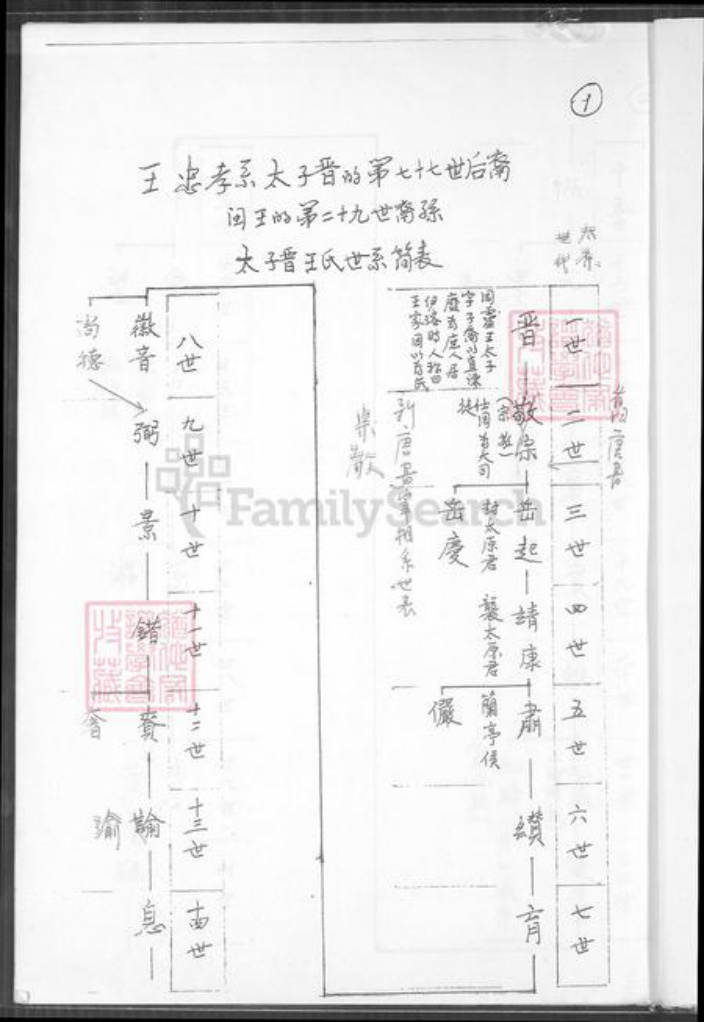 1
王忠孝系太子晋的第七十七世后裔
闽王的第二十九世裔孙
太子晋王氏世系简表
世代
一世
晋
周灵王太子
字子乔以直谏
废为庶人居
伊洛时人称曰
王家因以为氏
二世
敬宗
仕周为大司
徒
新唐书宰相系世表
三世
岳起
封太原君
岳庆
四世
靖康
袭太原君
五世
肅
蘭亭侯
儼
六世
纘
七世
育
八世
徽音
尚德
九世
弼
十世
景
十一世
錯
十二世
賁
奢
十三世
渝
十四世
息
FamilySearch